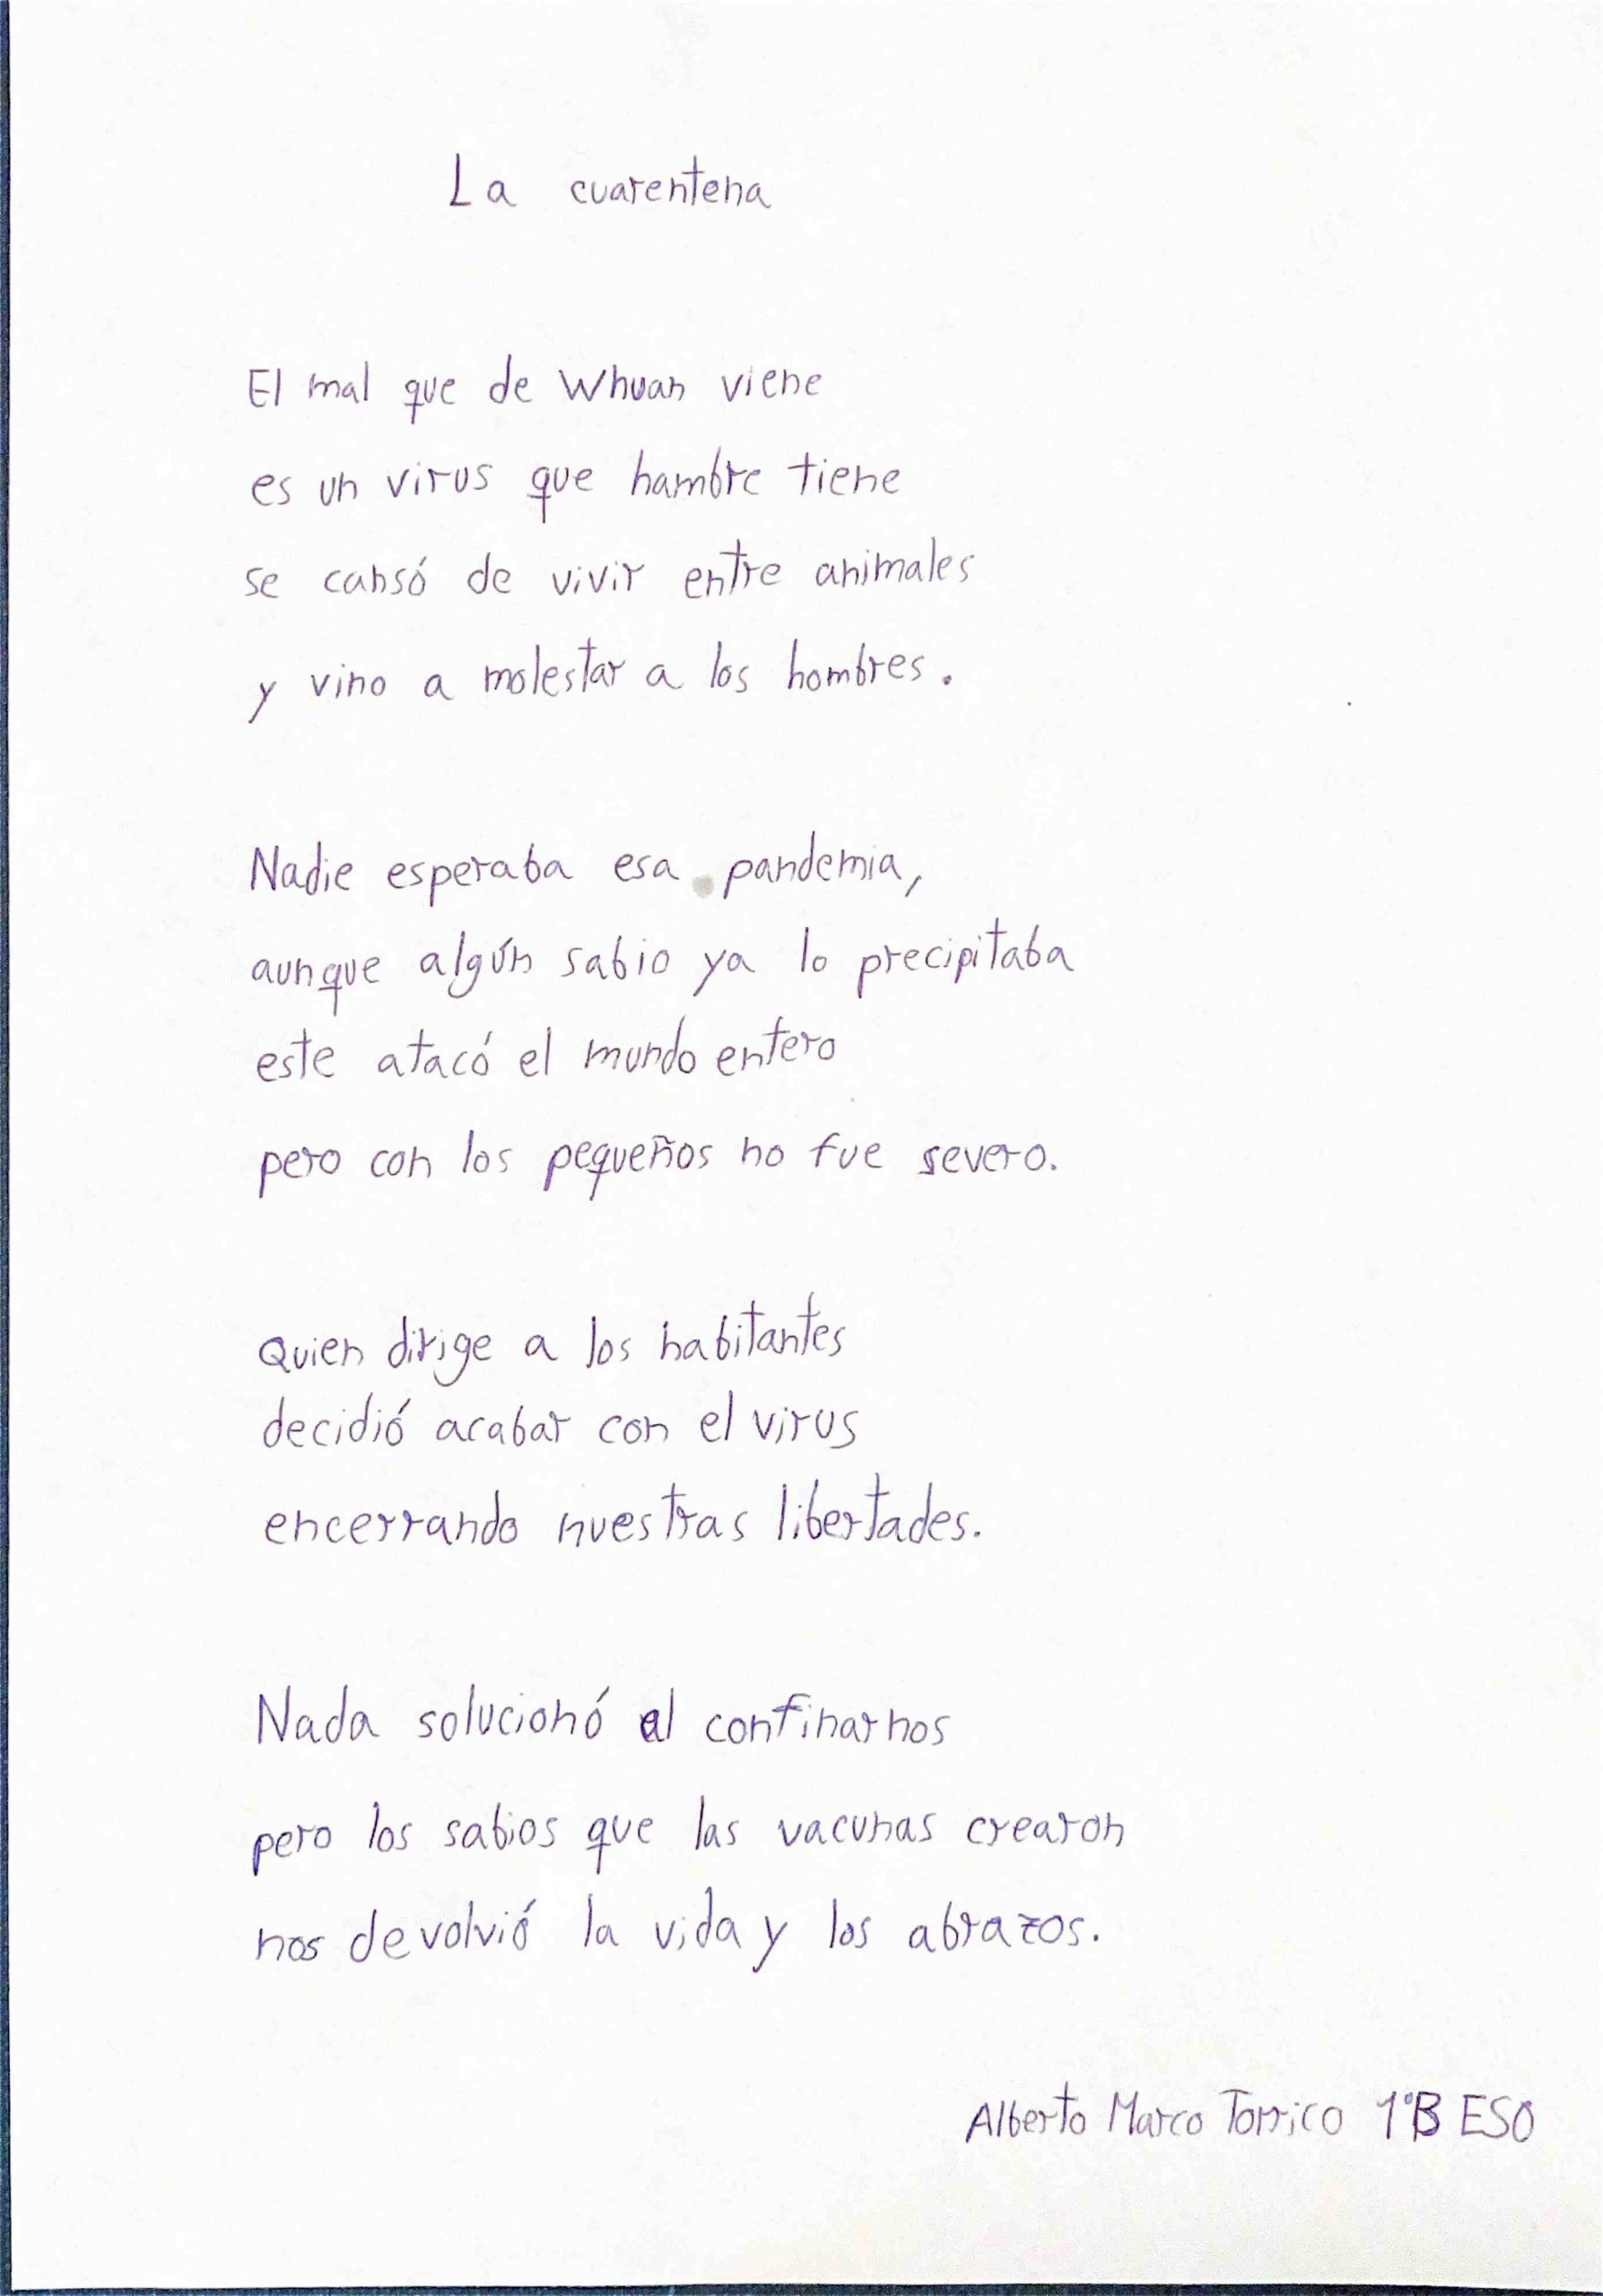 La cuarentena
El mal que de Whuan viene
es un virus que hambre tiene
se cansó de vivir entre animales
y vino a molestar a los hombres.
Nadie esperaba esa pandemia,
aunque algún sabio ya lo precipitaba
este atacó el mundo entero
pero con los pequeños no fue severo.
Quien dirige a los habitantes
decidió acabar con el virus
encerrando nuestras libertades.
Nada solucionó al confinarnos
pero los sabios que las vacunas crearon
nos devolvió la vida y los abrazos.
Alberto Marco Torrico 1ºB ESO